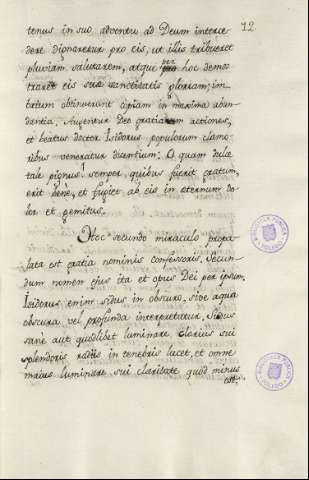 12
tenus in suo adventu ad Deum interce
dere dignaretur pro eis, ut illis tribueret
pluviam salutarem, atque per hoc demos
traret eis suæ sanctitatis gloriam, im
brium obtinuerunt copiam in maxima abun
dantia, Augentur Deo gratiarum actiones,
et beatus doctor Isidorus populorum clamo
ribus veneratur dicentium: O quam dulce
tale pignus semper, quibus fuerit gratum,
erit bene, et fugiet ab eis in eternum do
lor et gemitus.
Hoc secundo miraculo propa
lata est gratia nominis confessoris. Secun
dum nomen ejus ita et opus Dei per ipsum,
Isidorus enim sidus in obscuro, sive aqua
obscura vel profunda interpretatur, Sidus
sane aut quodlibet luminare clarius sui
splendoris radiis in tenebris lucet, et omne
maius luminare sui claritate quod minus
est
BIBLIOTECA PUBLICA
TOLEDO
BIBLIOTECA PUBLICA
TOLEDO